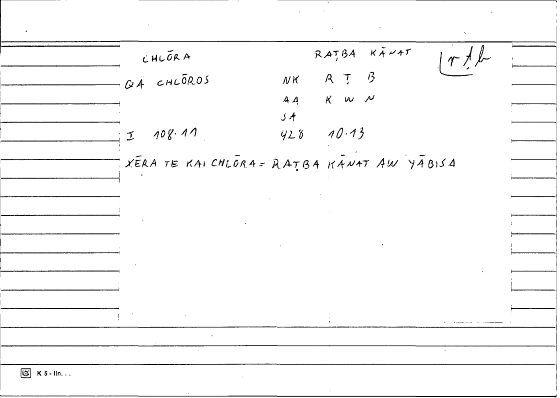 CHLŌRA RAṬBA KĀNAT rṭb
QA CHLŌROS NK R Ṭ B
AA K W N
SA
I 108.11 428 10.13
XĒRA TE KAI CHLŌRA = RAṬBA KĀNAT AW YĀBISA
K 5 - lin. . .